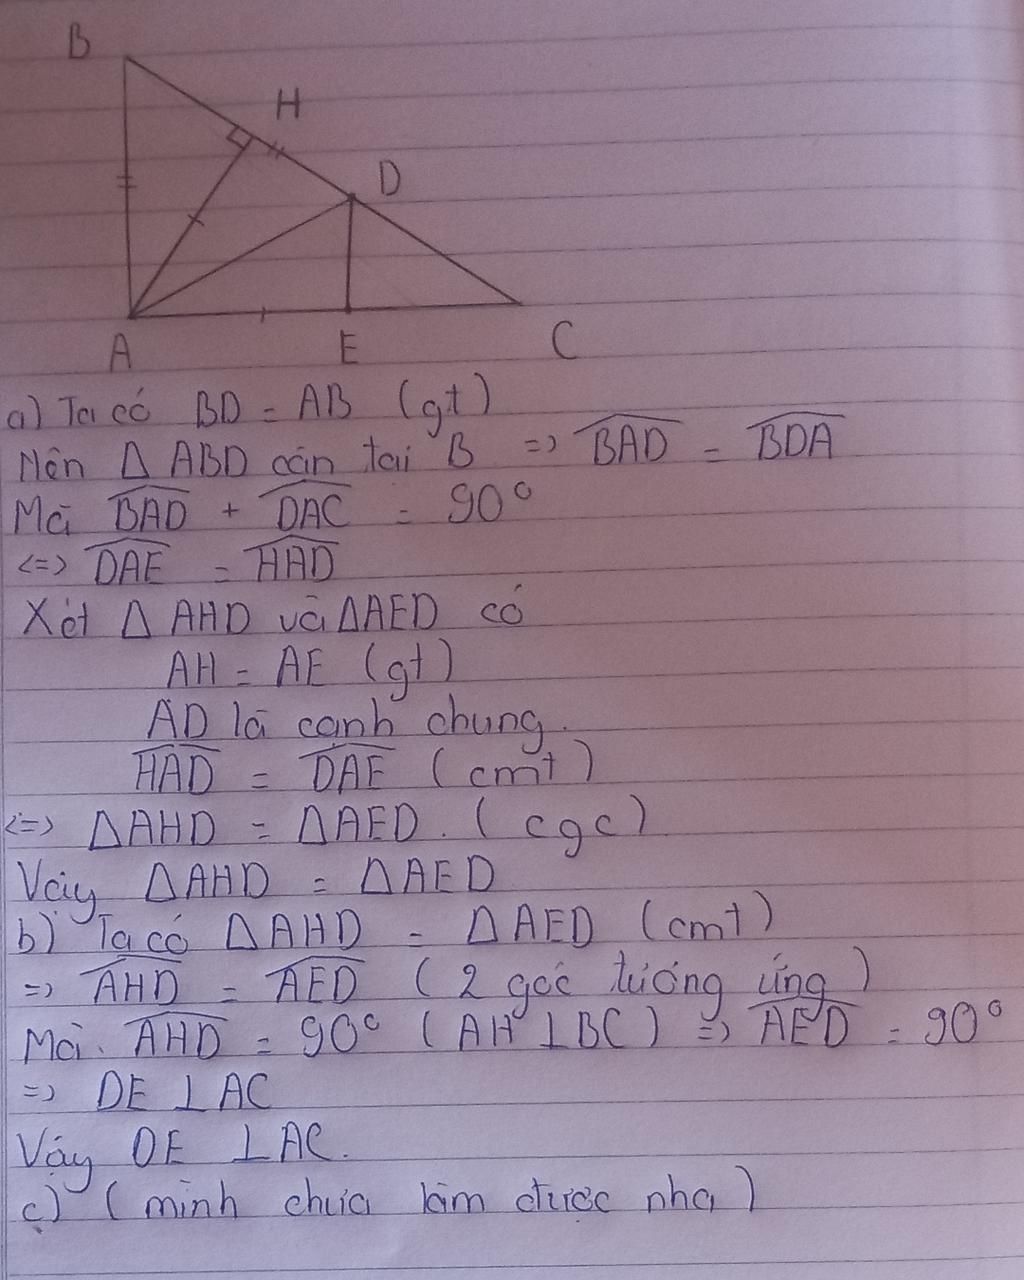 B
H
D
A
E
C
a) Ta có BD = AB (gt)
Nên Δ ABD cân tại B => BAD = BDA
Mà BAD + DAC = 90°
<=> DAE = HAD
Xét Δ AHD và ΔAED có
AH = AE (gt)
AD là cạnh chung.
HAD = DAE (cmt)
<=> ΔAHD = ΔAED. (cgc)
Vậy ΔAHD = ΔAED
b) Ta có ΔAHD = ΔAED (cmt)
=> AHD = AED (2 góc tương ứng)
Mà. AHD = 90° (AH ⊥ BC) => AED = 90°
=> DE ⊥ AC
Vậy DE ⊥ AC.
c) (mình chưa làm được nha)